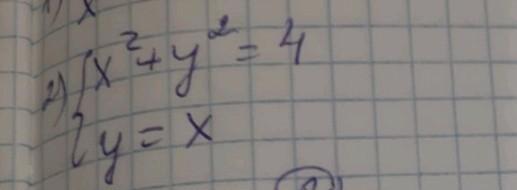 1) x
2) { x² + y² = 4
{ y = x